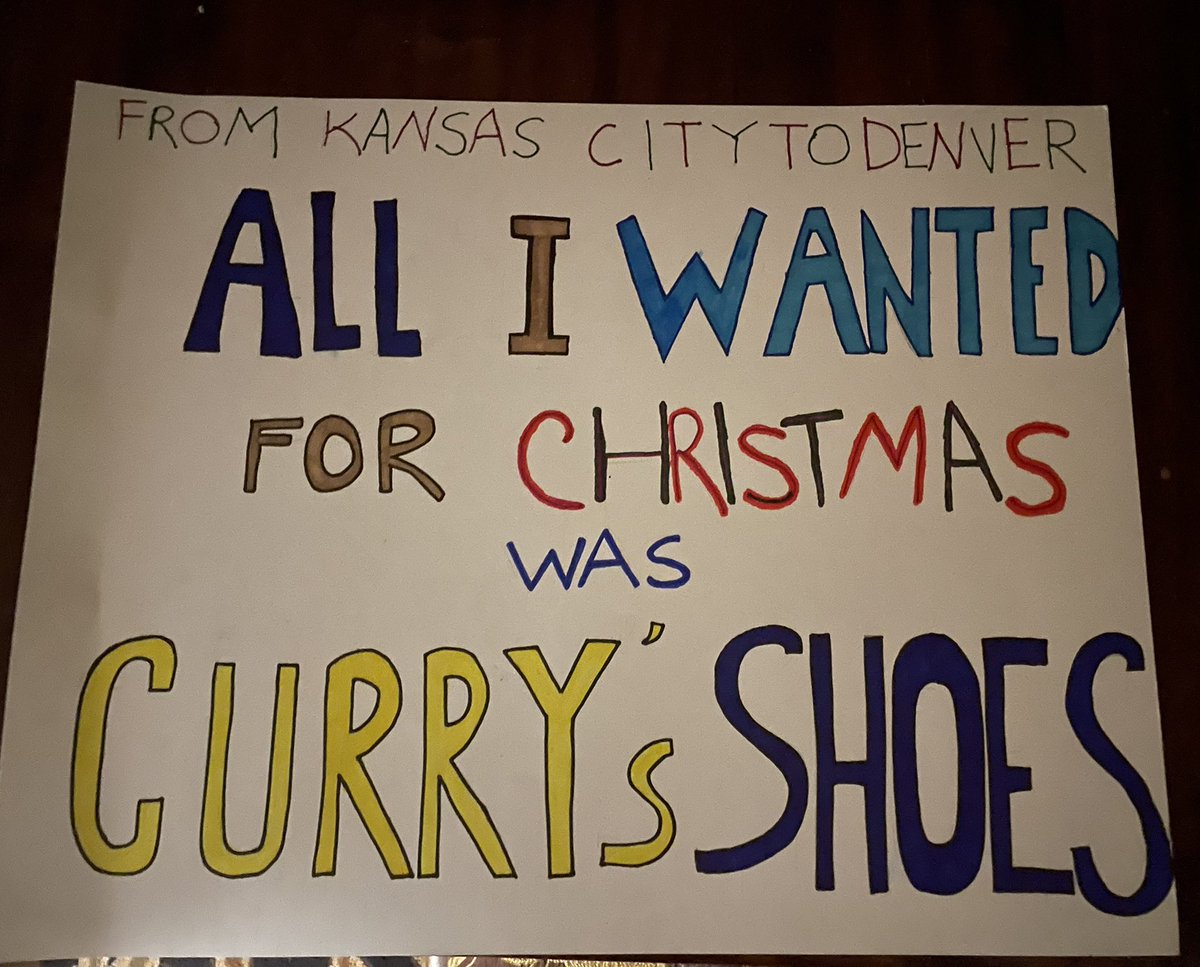 FROM KANSAS CITY TO DENVER
ALL I WANTED
FOR CHRISTMAS
WAS
CURRY'S SHOES